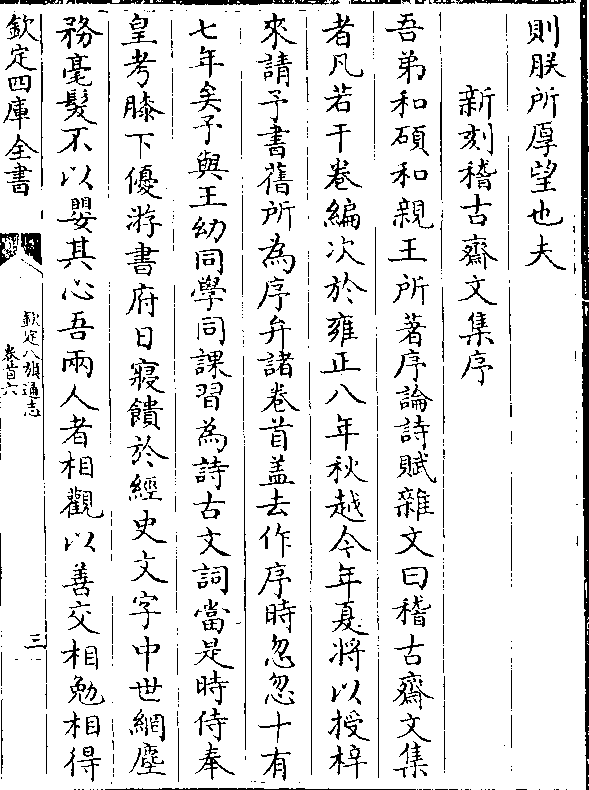 則朕所厚望也夫
新刻稽古齋文集序
吾弟和碩和親王所著序論詩賦雜文曰稽古齋文集
者凡若干卷編次於雍正八年秋越今年夏將以授梓
來請予書舊所為序弁諸卷首盖去作序時忽忽十有
七年矣予與王幼同學同課習為詩古文詞當是時侍奉
皇考膝下優游書府日寢饋於經史文字中世網塵
務毫髮不以嬰其心吾兩人者相觀以善交相勉相得
欽定四庫全書
欽定八旗通志
卷首六
三